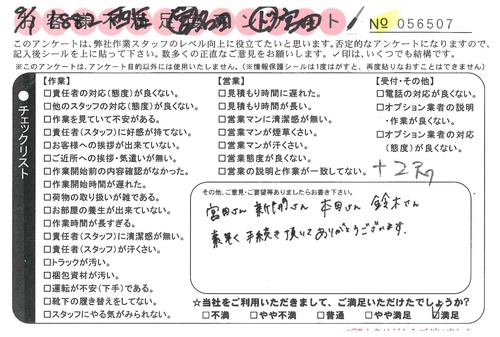 No 056507
このアンケートは、弊社作業スタッフのレベル向上に役立てたいと思います。否定的なアンケートになりますので、
記入後シールを上に貼って下さい。多数の正直なご意見をお願いします。✓印は、いくつでも結構です。
※このアンケートは、アンケート目的以外には使用いたしません。(※情報保護シールは1度はがすと、再度貼りなおすことはできません)
チェックリスト
【作業】
□責任者の対応(態度)が良くない。
□他のスタッフの対応(態度)が良くない。
□作業を見ていて不安がある。
□責任者(スタッフ)に好感が持てない。
□お客様への挨拶が出来ていない。
□ご近所への挨拶・気遣いが無い。
□作業開始前の内容確認がなかった。
□作業開始時間が遅れた。
□荷物の取り扱いが雑である。
□お部屋の養生が出来ていない。
□作業時間が長すぎる。
□責任者(スタッフ)に清潔感が無い。
□責任者(スタッフ)が汗くさい。
□トラックが汚い。
□梱包資材が汚い。
□運転が不安(下手)である。
□靴下の履き替えをしてない。
□スタッフにやる気がみられない。
【営業】
□見積もり時間に遅れた。
□見積もり時間が長い。
□営業マンに清潔感が無い。
□営業マンが煙草くさい。
□営業マンが汗くさい。
□営業態度が良くない。
□営業の説明と作業が一致してない。
【受付・その他】
□電話の対応が良くない。
□オプション業者の説明
・作業が良くない。
□オプション業者の対応
(態度)が良くない。
その他、ご意見・ご要望等ありましたらお書き下さい。
宮田さん 新村さん 本田さん 鈴木さん
素早く手続き頂いてありがとうございます。
☆当社をご利用いただきまして、ご満足いただけたでしょうか?
□不満 □やや不満 □普通 □やや満足 ☑満足